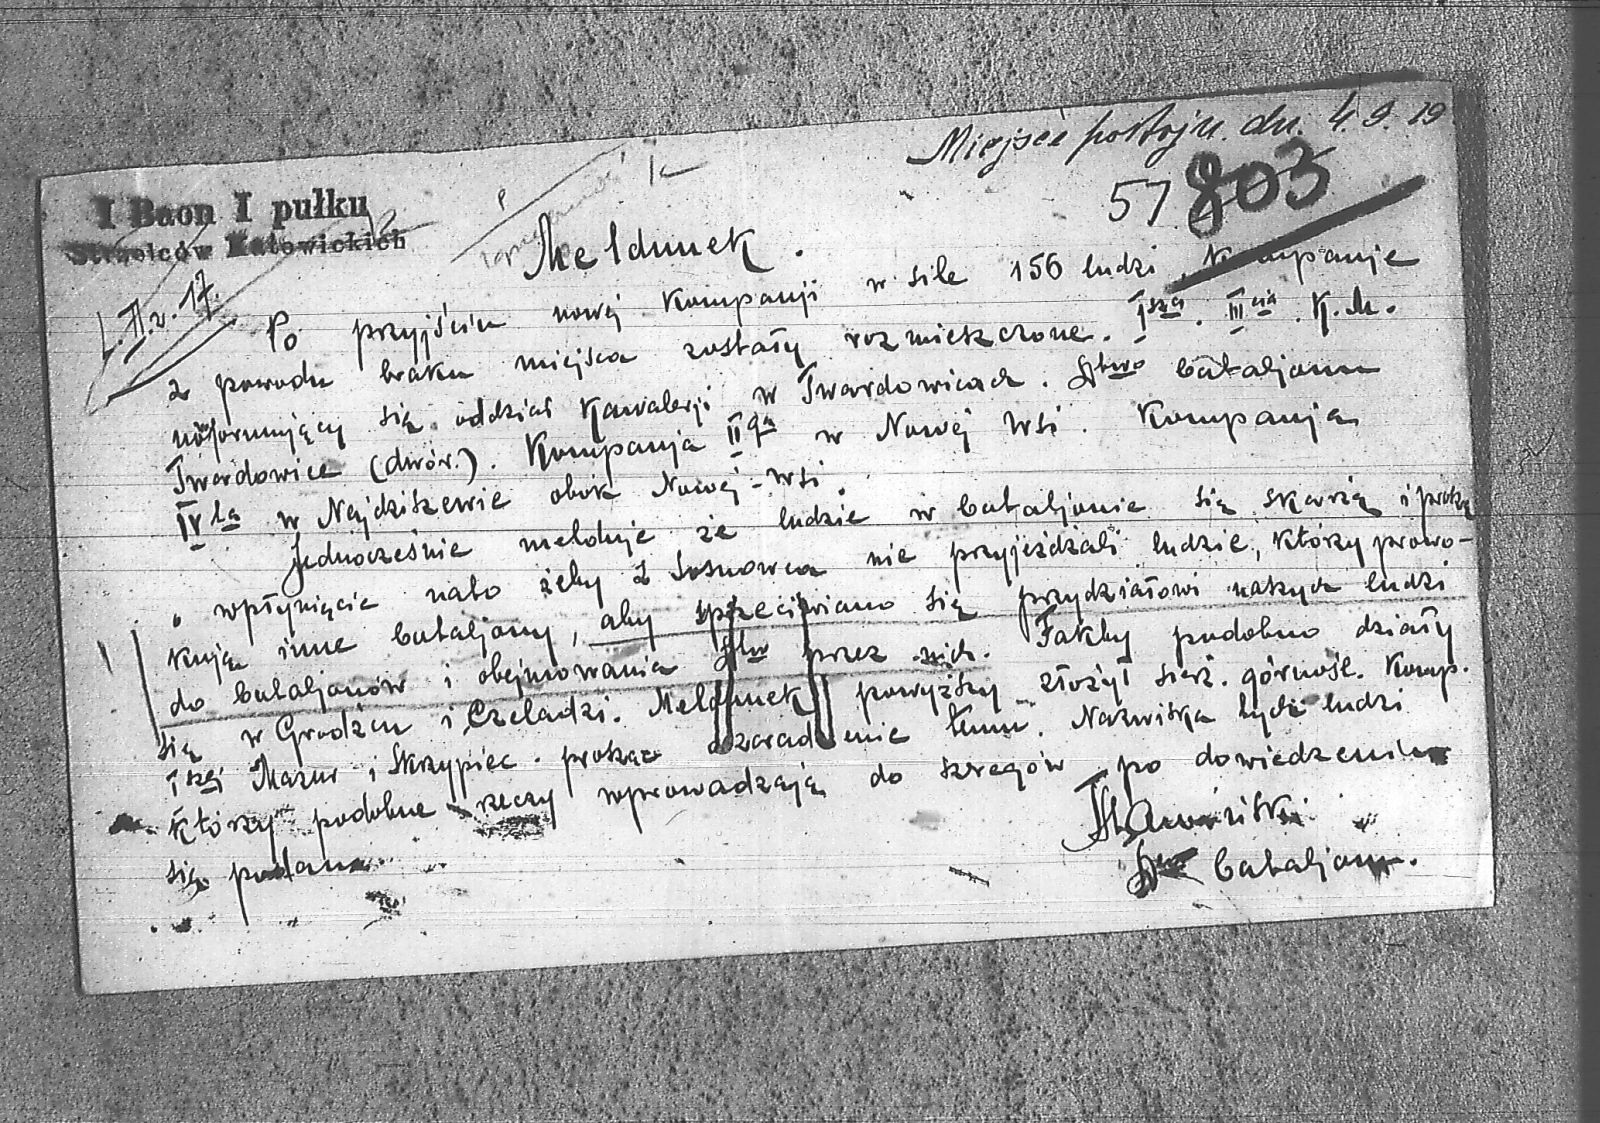 Miejsce postoju. dn. 4.9.19
57 803
I Baon I pułku
Strzelców Katowickich
L. II. v. 17.
Meldunek.
Po przyjściu nowej Kompanji w sile 156 ludzi, Kompanje
z powodu braku miejsca zostały rozmieszczone. I sza. III cia. K.M.
formujący się oddział Kawalerji w Twardowicach. Dtwo bataljonu
Twardowice (dwór.). Kompanja II ga w Nowej Wsi. Kompanja
IV ta w Najdziszewie obok Nowej-Wsi.
Jednocześnie melduję że ludzie w bataljonie się skarżą i proszą
o wpłynięcie nato żeby z Sosnowca nie przyjeżdżali ludzie, którzy prowo-
kują inne bataljony, aby sprzeciwiano się przydziałowi naszych ludzi
do bataljonów i obejmowania Dtw przez nich. Fakty podobno działy
się w Grodźcu i Czeladzi. Meldunek powyższy złożył sierż. górnośl. Komp.
I szej Mazur i Skrzypiec. proszę zaradzenie temu. Nazwiska tych ludzi
którzy podobne rzeczy wprowadzają do szregów po dowiedzeniu
się podam.
Dtwo bataljonu.